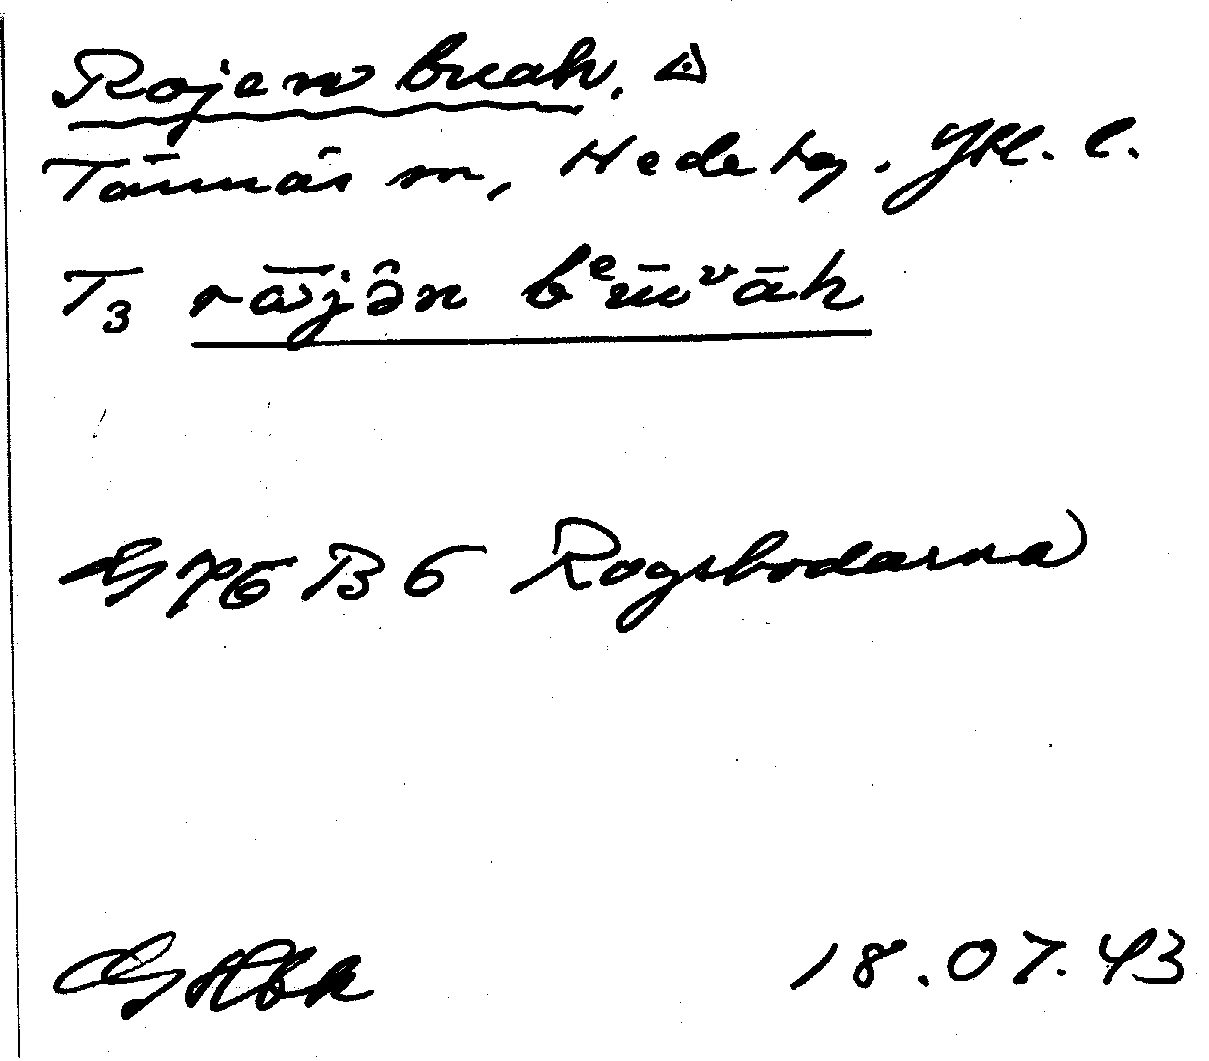 Rojen buah. ◬
Tännäs sn, Hedebg. Jkl. l.
T3 rā̀jə̂n bᵉūᵛāh
G 76 B 6 Rogsbodarna)
18.07.43